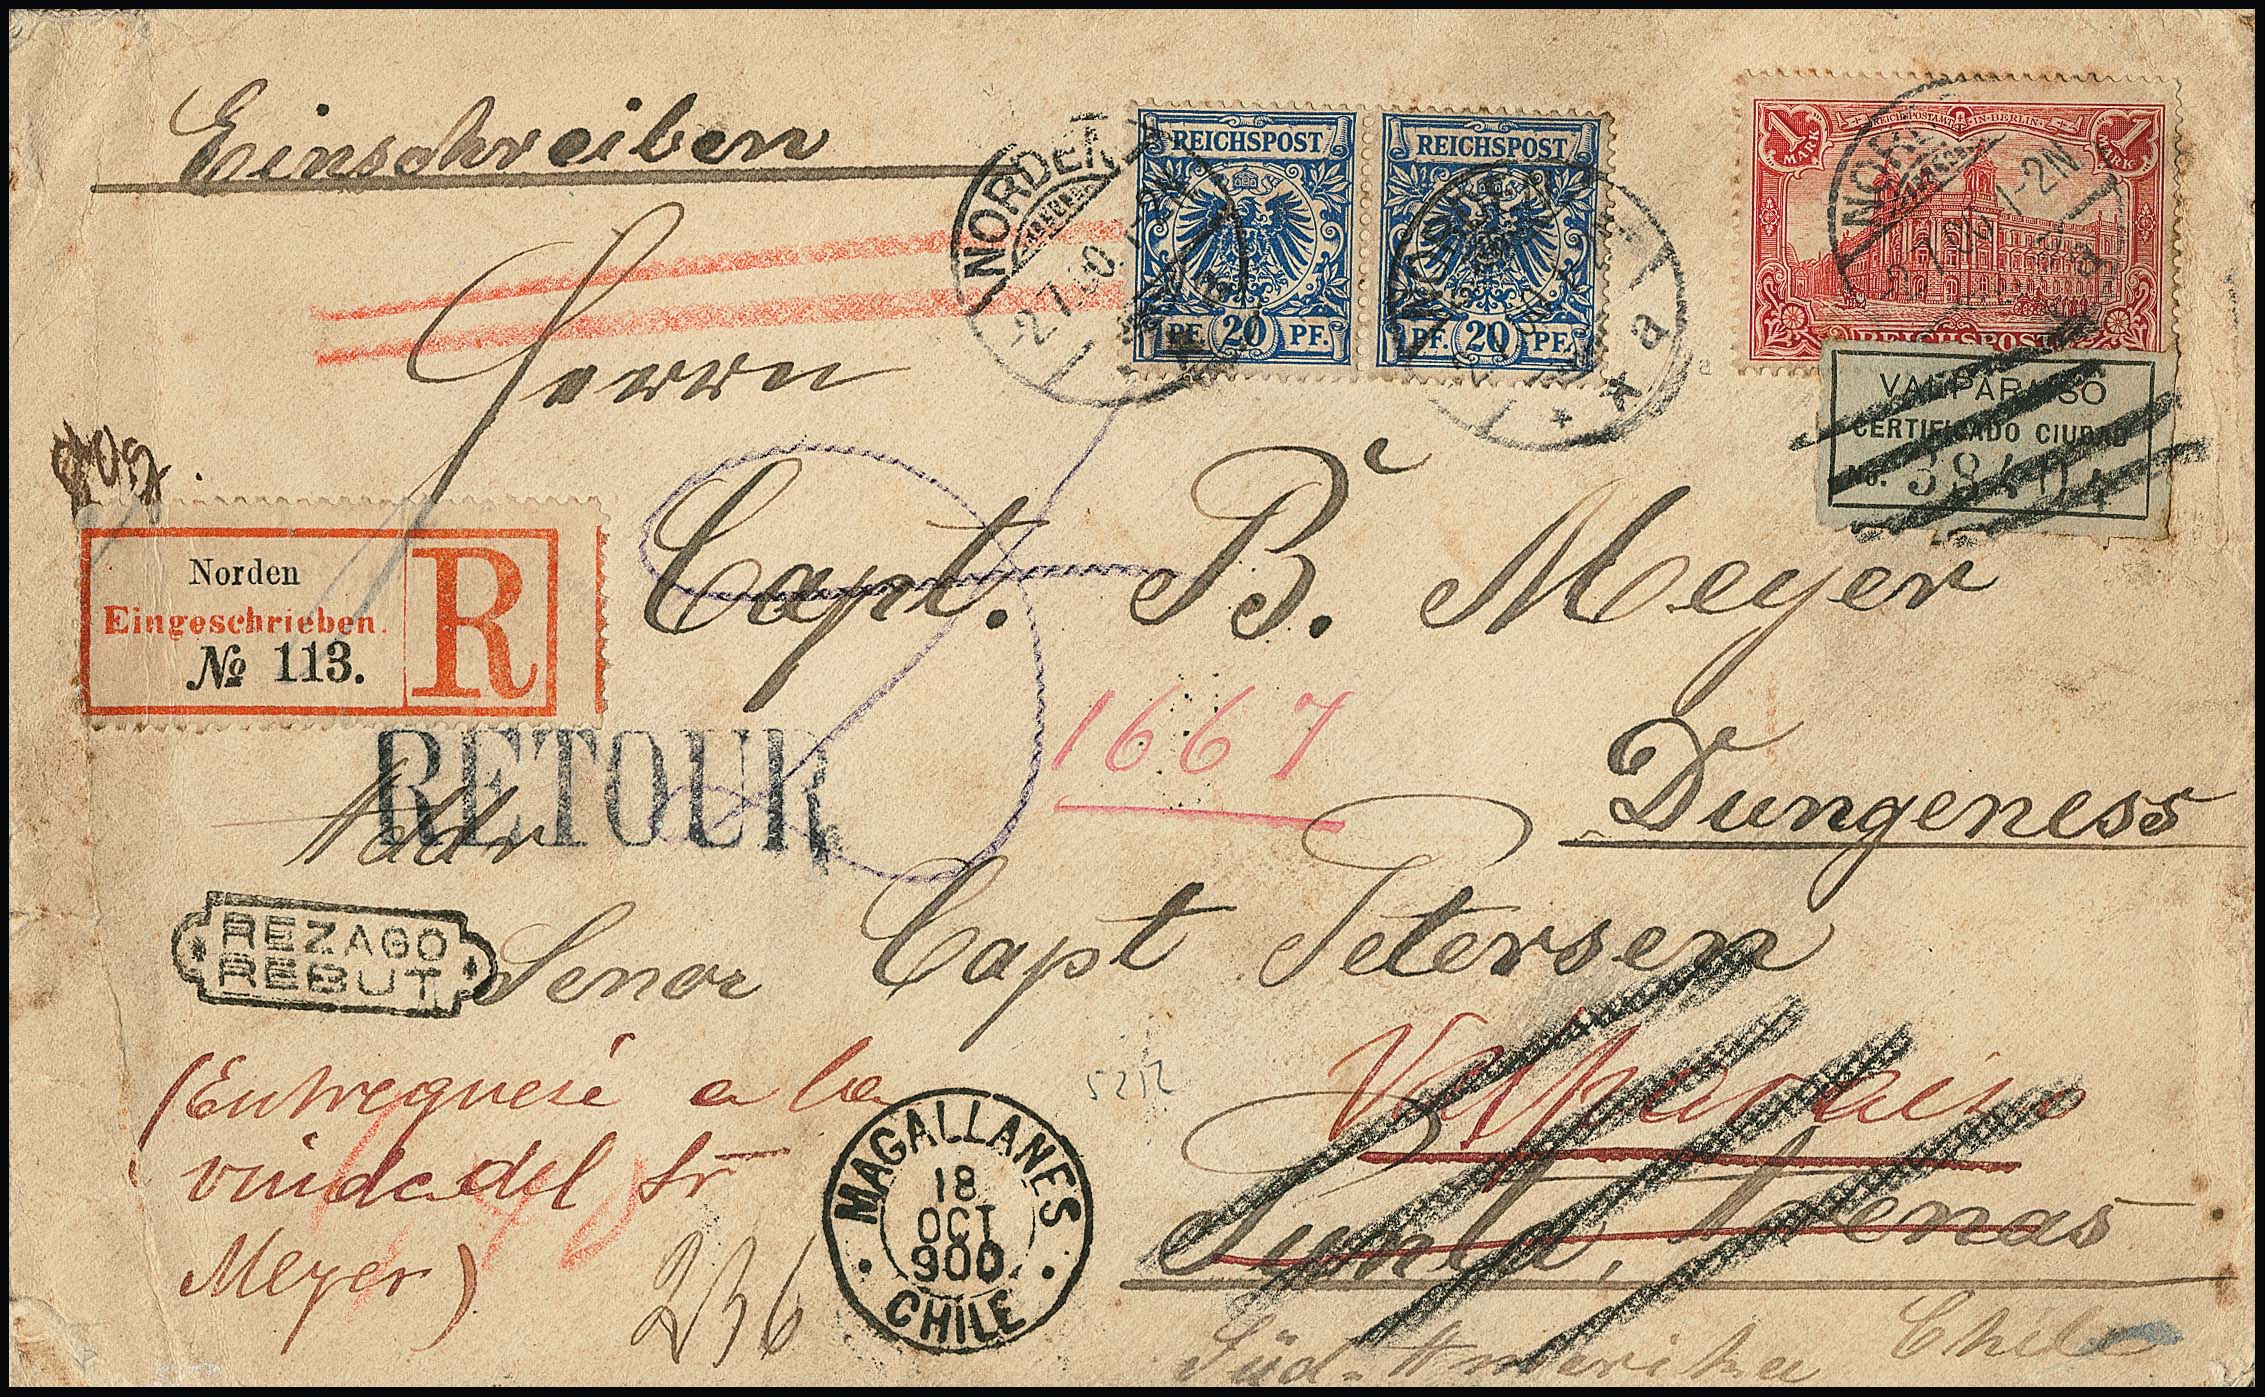 Einschreiben
REICHSPOST
PF. 20 PF.
REICHSPOST
PF. 20 PF.
REICHSPOSTAMT IN BERLIN
1 MARK
1 MARK
REICHSPOST
NORDEN
2 7 00 1-2N
a
VALPARAISO
CERTIFICADO CIUDAD
No.
Herrn
Capt. B. Meyer
Norden
Eingeschrieben.
№ 113.
R
1667
RETOUR
Dungeness
Addr
Senor Capt Petersen
REZAGO
REBUT
Valparaiso
Punta, Arenas
(Entreguese a la
viuda del Sr
Meyer)
236
5212
MAGALLANES
18
OCT
900
CHILE
Süd-Amerika Chile